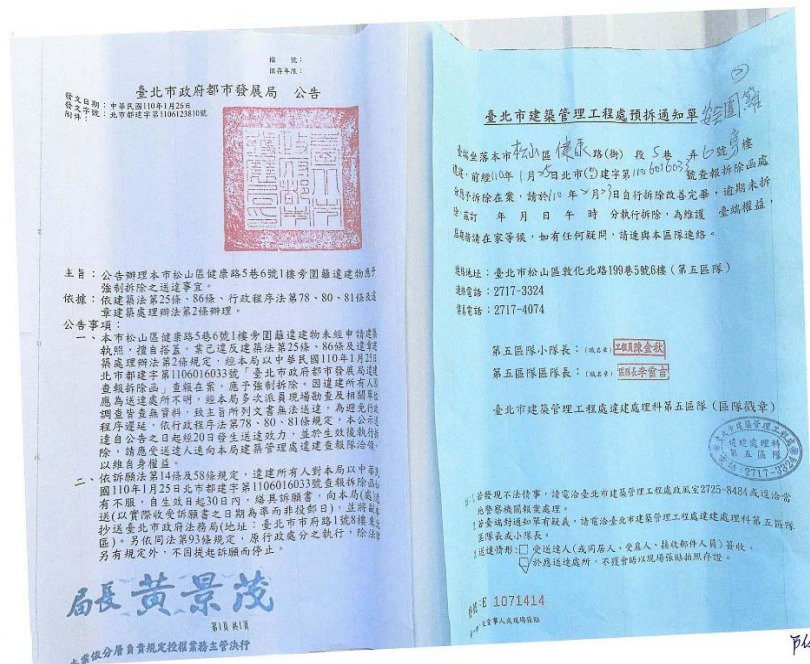 檔　號：
保存年限：
臺北市政府都市發展局　公告
發文日期：中華民國110年1月26日
發文字號：北市都建字第1106123810號
附件：
主旨：公告辦理本市松山區健康路5巷6號1樓旁圍籬違建物應予
強制拆除之送達事宜。
依據：依建築法第25條、86條、行政程序法第78、80、81條及違
章建築處理辦法第2條辦理。
公告事項：
一、本市松山區健康路5巷6號1樓旁圍籬違建物未經申請建築
執照，擅自搭蓋，業已違反建築法第25條、86條及違章建
築處理辦法第2條規定，經本局以中華民國110年1月25日
北市都建字第1106016033號「臺北市政府都市發展局違建
查報拆除函」查報在案，應予強制拆除。因違建所有人因
應為送達處所不明，經本局多次派員現場勘查及相關單位
調查皆查無資料，致主旨所列文書無法送達，為避免行政
程序遲延，依行政程序法第78、80、81條規定，本公示送
達自公告之日起經20日發生送達效力，並於生效後執行拆
除，請應受送達人逕向本局建築管理處違建查報隊洽領，
以維自身權益。
二、依訴願法第14條及58條規定，違建所有人對本局以中華民
國110年1月25日北市都建字第1106016033號查報拆除函如
有不服，自生效日起30日內，繕具訴願書，向本局(處)遞
送(以實際收受訴願書之日期為準而非投郵日)，並將副本
抄送臺北市政府法務局(地址：臺北市市府路1號8樓東北
區)。另依同法第93條規定，原行政處分之執行，除法律
另有規定外，不因提起訴願而停止。
局長 黃景茂
第1頁 共1頁
本案依分層負責規定授權業務主管決行
臺北市建築管理工程處預拆通知單
臺端坐落本市松山區健康路(街)　段5巷　弄6號旁樓
違建，前經110年1月25日北市(都)建字第1106016033號查報拆除函處
分應予拆除在案，請於110年2月23日自行拆除改善完畢，逾期未拆
除，茲訂　年　月　日　午　時　分執行拆除，為維護　臺端權益，
屆時務請在家等候，如有任何疑問，請速與本區隊連絡。
連絡地址：臺北市松山區敦化北路199巷5號6樓（第五區隊）
連絡電話：2717-3324
傳真電話：2717-4074
第五區隊小隊長：（職名章）工程員陳金秋
第五區隊區隊長：（職名章）區隊長李雷吉
臺北市建築管理工程處違建處理科第五區隊（區隊戳章）
臺北市建築管理工程處
違建處理科
第五區隊
電話:2717-3324
若發現不法情事，請電洽臺北市建築管理工程處政風室2725-8484或逕洽當
地警察機關報案處理。
若臺端對通知單有疑義，請電洽臺北市建築管理工程處違建處理科第五區隊
區隊長或小隊長。
送達情形：□ 受送達人(或同居人、受雇人、接收郵件人員) 簽收。
於應送達處所，不獲會晤以現場張貼拍照存證。
E 1071414